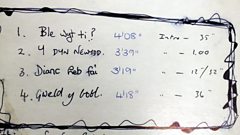 1. Ble wyt ti? 4'08" Intro - 35"
2. Y Dyn Newydd. 3'39" " - 1.00
3. Dianc Rab fai 3'19" " - 12"/32"
4. Gweld y Gobl. 4'18" " - 36"